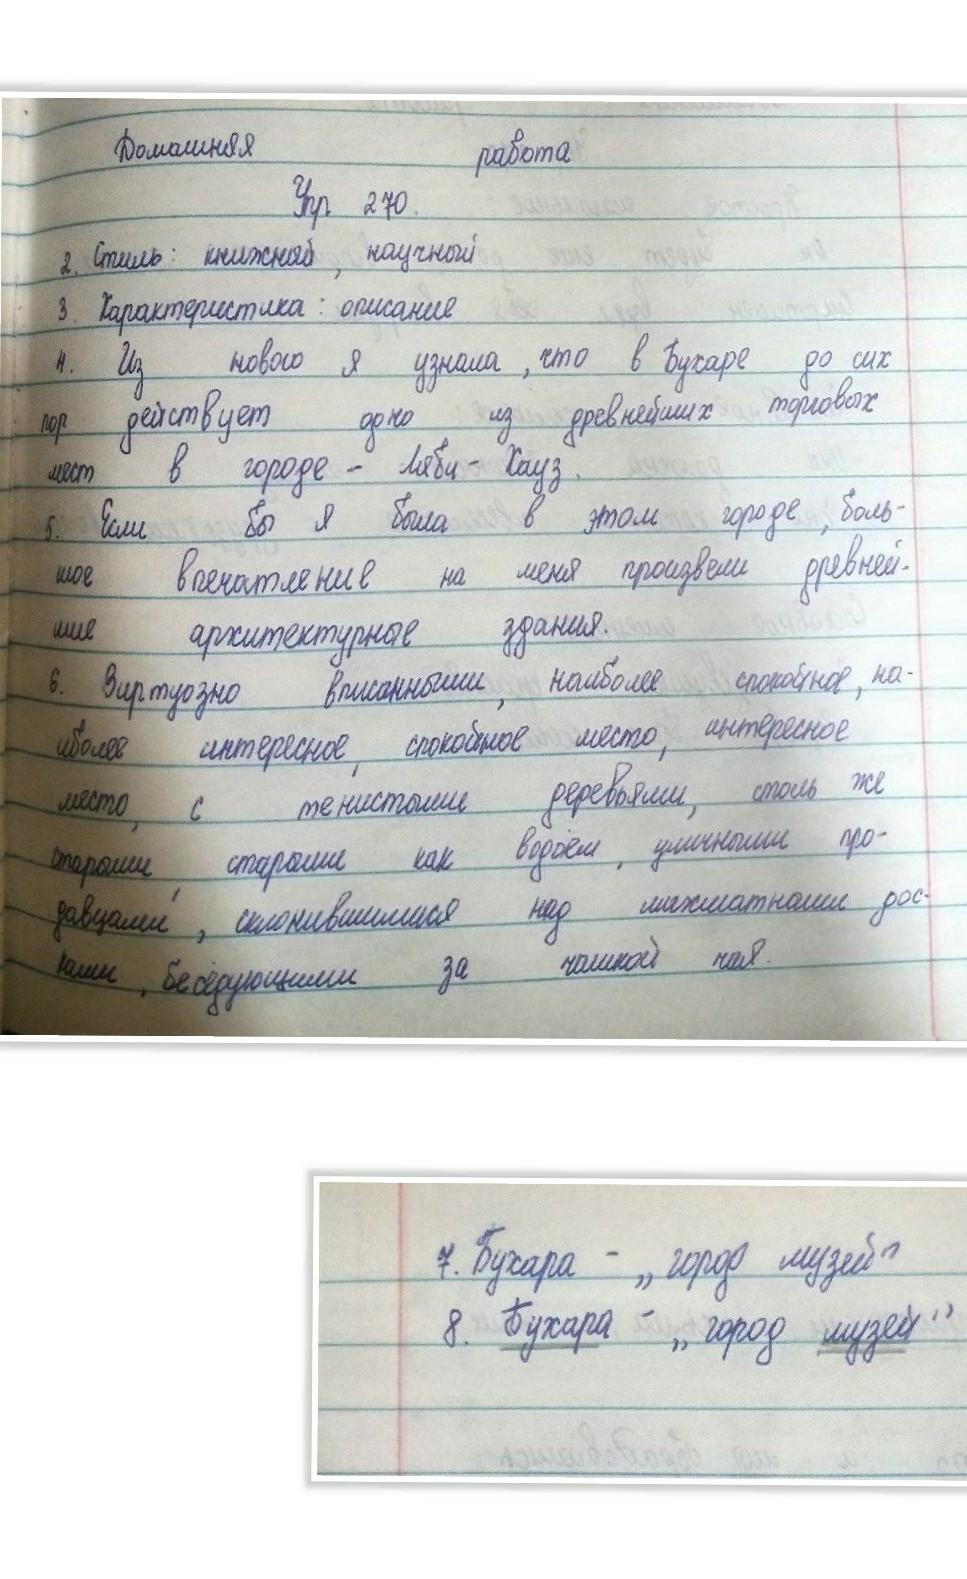 Домашняя работа
Упр 270.
2. Стиль: книжный, научный
3. Характеристика: описание
4. Из нового я узнала, что в Бухаре до сих
пор действует одно из древнейших торговых
мест в городе - Ляби - Хауз.
5. Если бы я была в этом городе, боль-
шое впечатление на меня произвели древней-
шие архитектурные здания.
6. Виртуозно вписанными, наиболее спокойное, на-
иболее интересное, спокойное место, интересное
место, с тенистыми деревьями, столь же
старыми, старыми как водоём, уличными про-
давцами, склонившимися над шахматными дос-
ками, беседующими за чашкой чая.
7. Бухара - „город музей"
8. Бухара - „город музей"